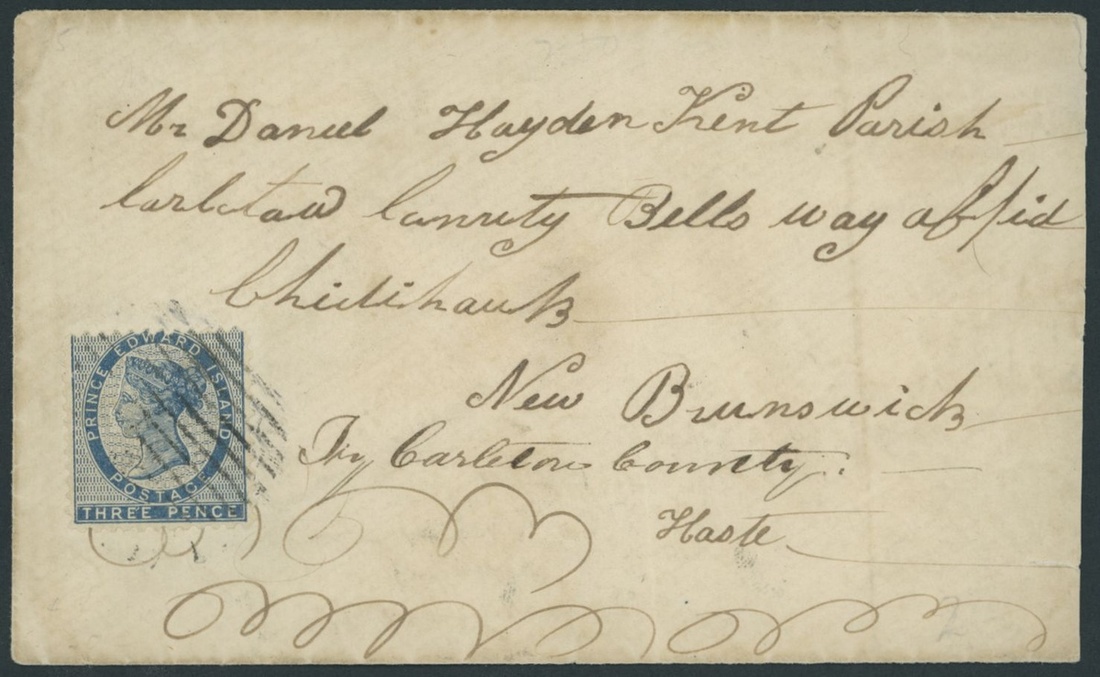 Mr Daniel Hayden Kent Parish
Carlotaw Connty Bells way offid
New Brunswick
Try Carleton County.
Haste
PRINCE EDWARD ISLAND
POSTAGE
THREE PENCE